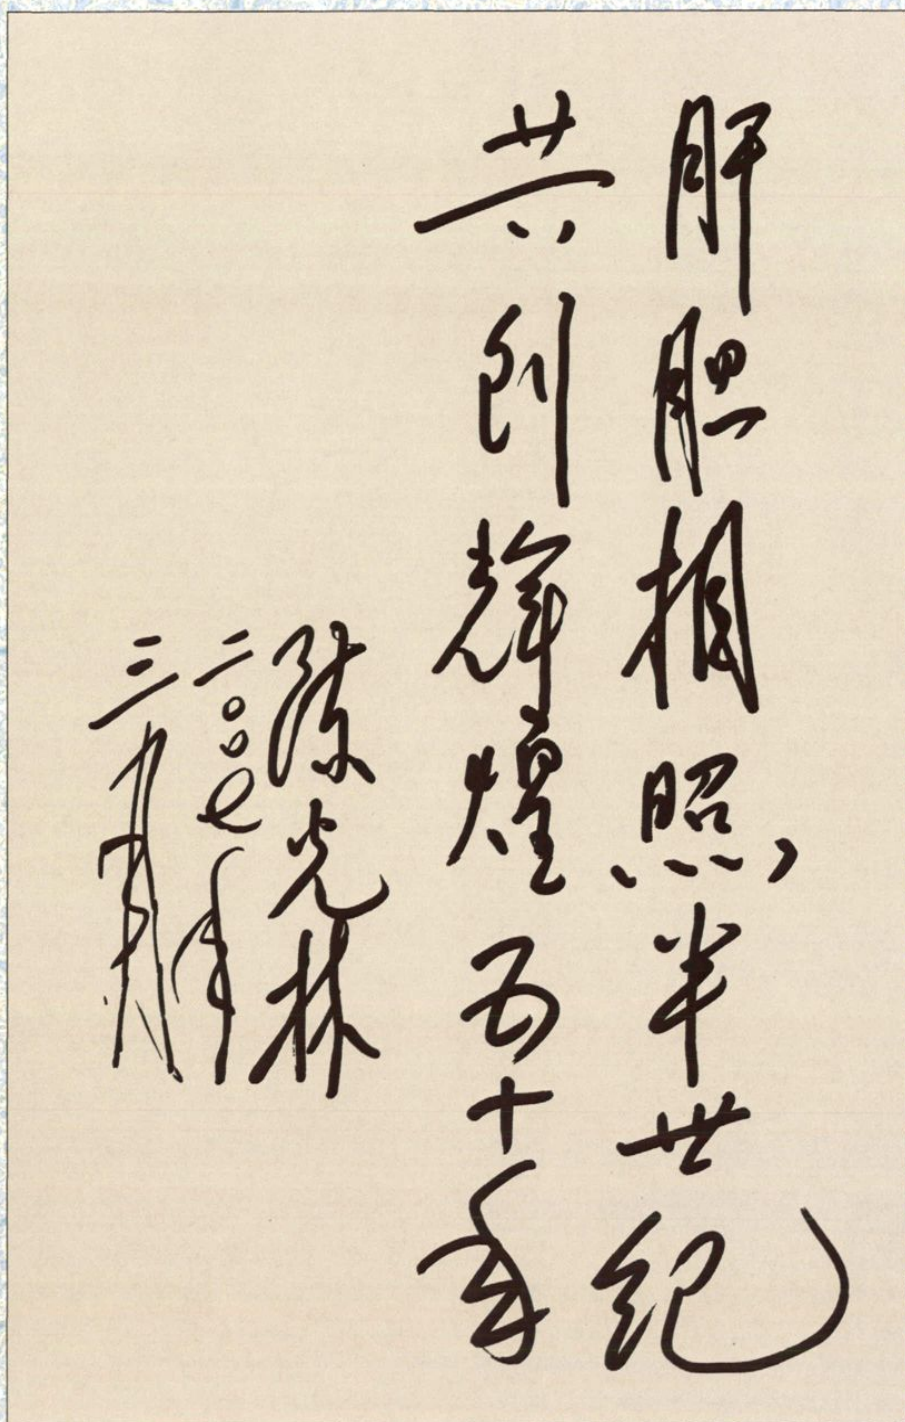 肝胆相照半世纪
共创辉煌五十年
陈光林
二〇〇七年
三月